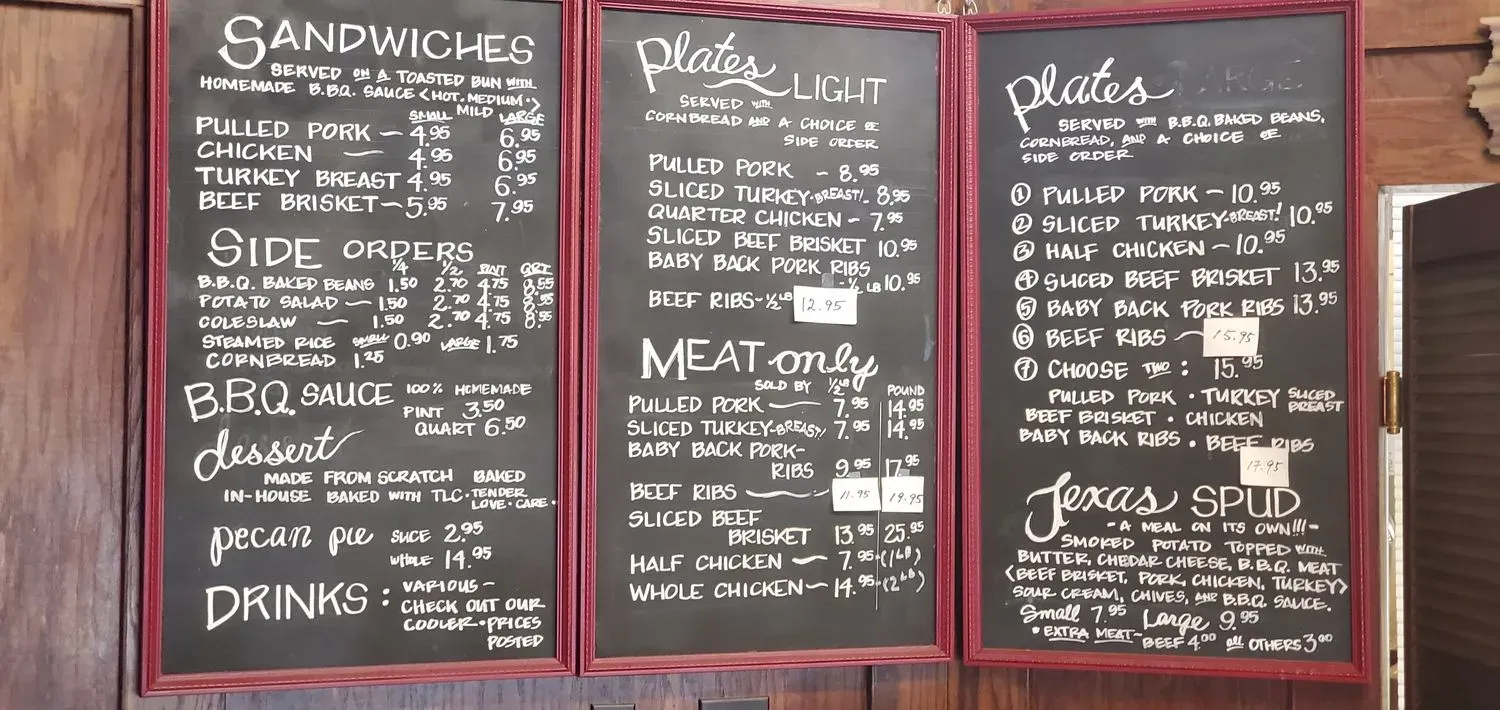 SANDWICHES
SERVED ON A TOASTED BUN WITH
HOMEMADE B.B.Q. SAUCE <HOT, MEDIUM, MILD>
SMALL LARGE
PULLED PORK — 4.95 6.95
CHICKEN — 4.95 6.95
TURKEY BREAST 4.95 6.95
BEEF BRISKET — 5.95 7.95
SIDE ORDERS
1/4 1/2 PINT QRT
B.B.Q. BAKED BEANS 1.50 2.70 4.75 8.55
POTATO SALAD — 1.50 2.70 4.75 8.55
COLESLAW — 1.50 2.70 4.75 8.55
STEAMED RICE SMALL 0.90 LARGE 1.75
CORNBREAD 1.25
B.B.Q. SAUCE 100% HOMEMADE
PINT 3.50
QUART 6.50
dessert
MADE FROM SCRATCH BAKED
IN-HOUSE BAKED WITH TLC · TENDER
LOVE · CARE ·
pecan pie SLICE 2.95
WHOLE 14.95
DRINKS : VARIOUS –
CHECK OUT OUR
COOLER · PRICES
POSTED
Plates LIGHT
SERVED WITH
CORNBREAD AND A CHOICE OF
SIDE ORDER
PULLED PORK – 8.95
SLICED TURKEY-BREAST! – 8.95
QUARTER CHICKEN – 7.95
SLICED BEEF BRISKET 10.95
BABY BACK PORK RIBS
– 1/2 LB 10.95
BEEF RIBS – 1/2 LB 12.95
MEAT only
SOLD BY 1/2 LB POUND
PULLED PORK — 7.95 14.95
SLICED TURKEY-BREAST! 7.95 14.95
BABY BACK PORK-
RIBS 9.95 17.95
BEEF RIBS — 11.95 19.95
SLICED BEEF
BRISKET 13.95 25.95
HALF CHICKEN — 7.95 (1 LB)
WHOLE CHICKEN — 14.95 (2 LB)
Plates
SERVED WITH B.B.Q. BAKED BEANS,
CORNBREAD, AND A CHOICE OF
SIDE ORDER
① PULLED PORK – 10.95
② SLICED TURKEY-BREAST! 10.95
③ HALF CHICKEN – 10.95
④ SLICED BEEF BRISKET 13.95
⑤ BABY BACK PORK RIBS 13.95
⑥ BEEF RIBS — 15.95
⑦ CHOOSE TWO : 15.95
PULLED PORK · TURKEY SLICED BREAST
BEEF BRISKET · CHICKEN
BABY BACK RIBS · BEEF RIBS
17.95
Texas SPUD
- A MEAL ON ITS OWN!!! -
SMOKED POTATO TOPPED WITH
BUTTER, CHEDAR CHEESE, B.B.Q. MEAT
<BEEF BRISKET, PORK, CHICKEN, TURKEY>
SOUR CREAM, CHIVES, AND B.B.Q. SAUCE.
Small 7.95 Large 9.95
* EXTRA MEAT – BEEF 4.00 all OTHERS 3.00